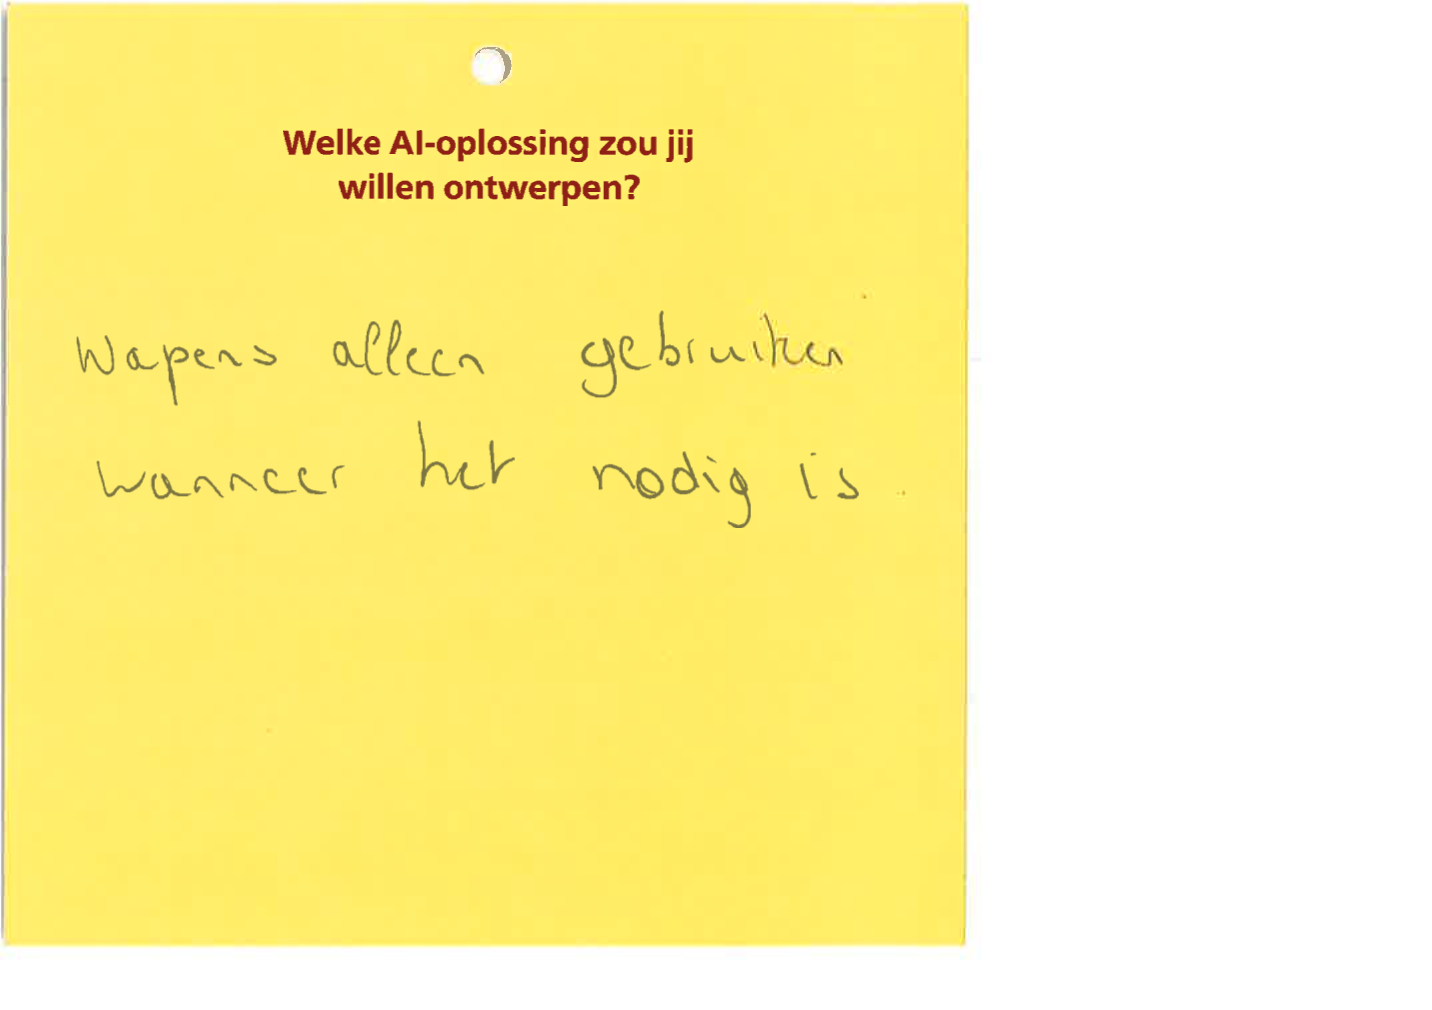 Welke AI-oplossing zou jij
willen ontwerpen?
Wapens alleen gebruiken
wanneer het nodig is.